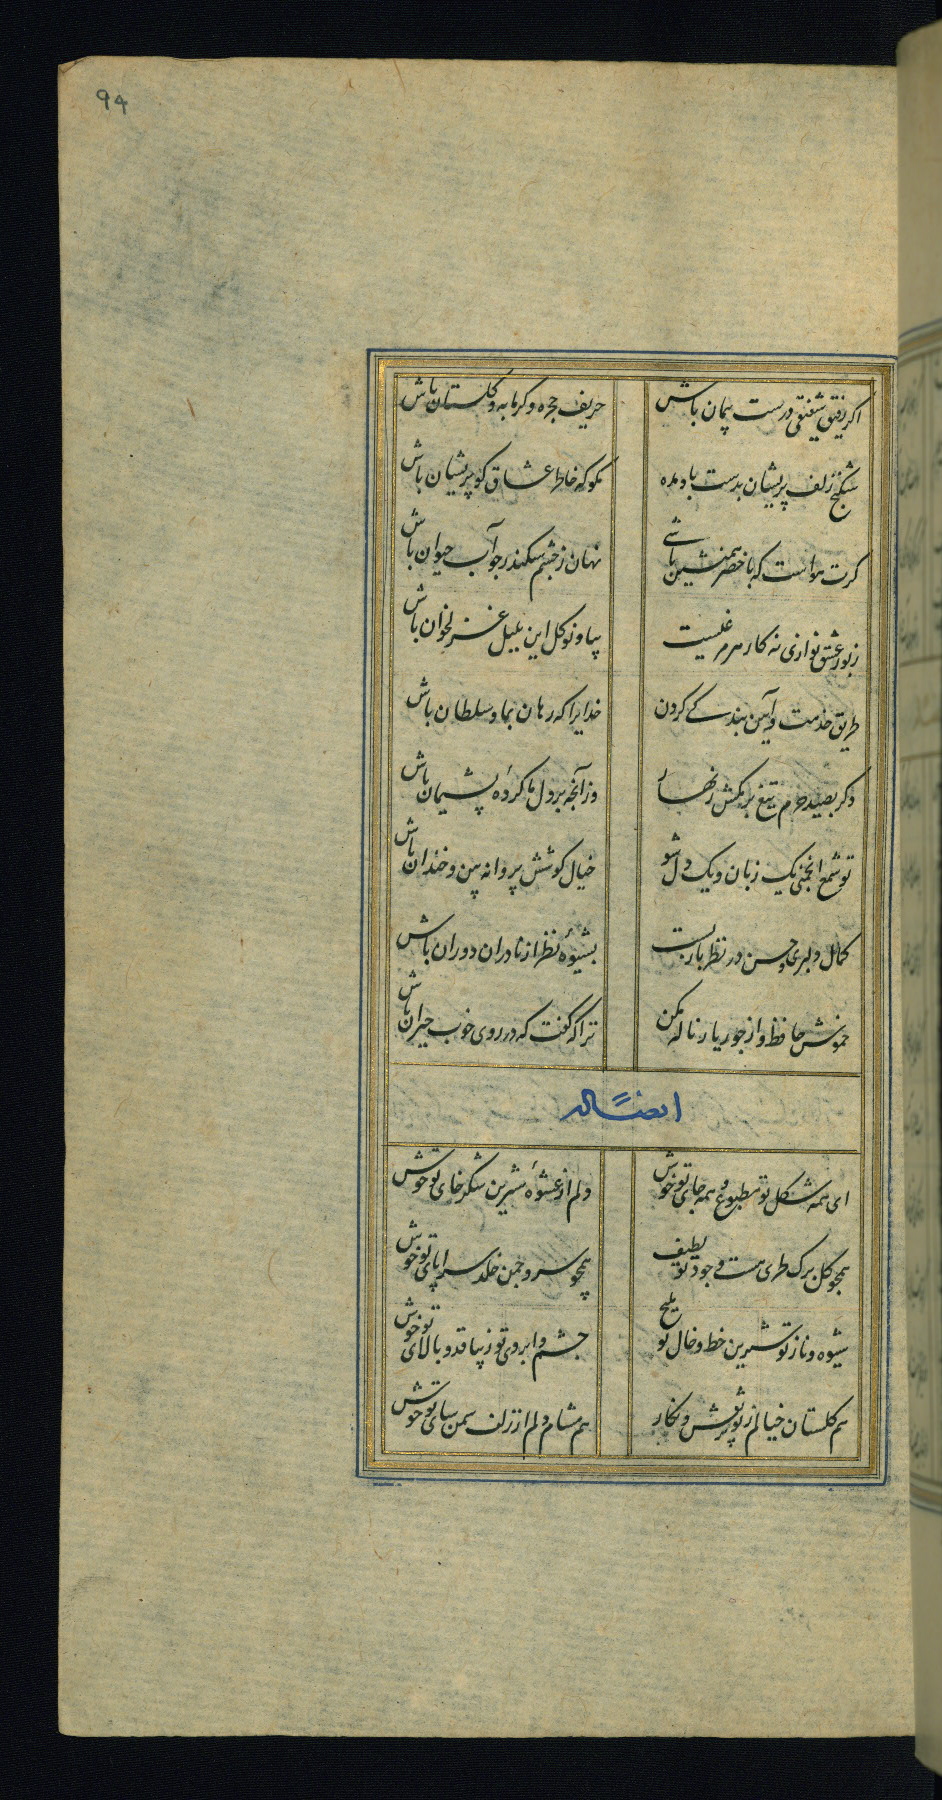 94
اکر رفیق شفیقی درست پیمان باش حریف حجره و کرمابه و کلستان باش
شکنج زلف پریشان بدست باد مده مکو که خاطر عشاق کو پریشان باش
کرت هواست که با خضر همنشین باشی نهان ز چشم سکندر چو آب حیوان باش
زبور عشق نوازی نه کار هر مرغیست بیا و نوکل این بلبل غزلخوان باش
طریق خدمت و آیین بندکی کردن خدایرا که رها کن بما و سلطان باش
دکر بصید حرم تیغ بر مکش زنهار وز آنچه بر دل ما کردهٔ پشیمان باش
تو شمع انجمنی یک زبان و یک دل شو خیال کوشش پروانه بین و خندان باش
کمال دلبری و حسن در نظر بازیست بشیوهٔ نظر از نادران دوران باش
خموش حافظ و از جور یار ناله مکن ترا که کفت که در روی خوب حیران باش
ایضاً له
ای همه شکل تو مطبوع و همه جای تو خوش دلم از عشوهٔ شیرین شکر خای تو خوش
همچو کل برک طری هست وجود تو لطیف همچو سرو چمن خلد سراپای تو خوش
شیوه و ناز تو شیرین خط و خال تو ملیح چشم و ابروی تو زیبا قد و بالای تو خوش
هم کلستان خیالم ز تو پر نقش و نکار هم مشام دلم از زلف سمن سای تو خوش